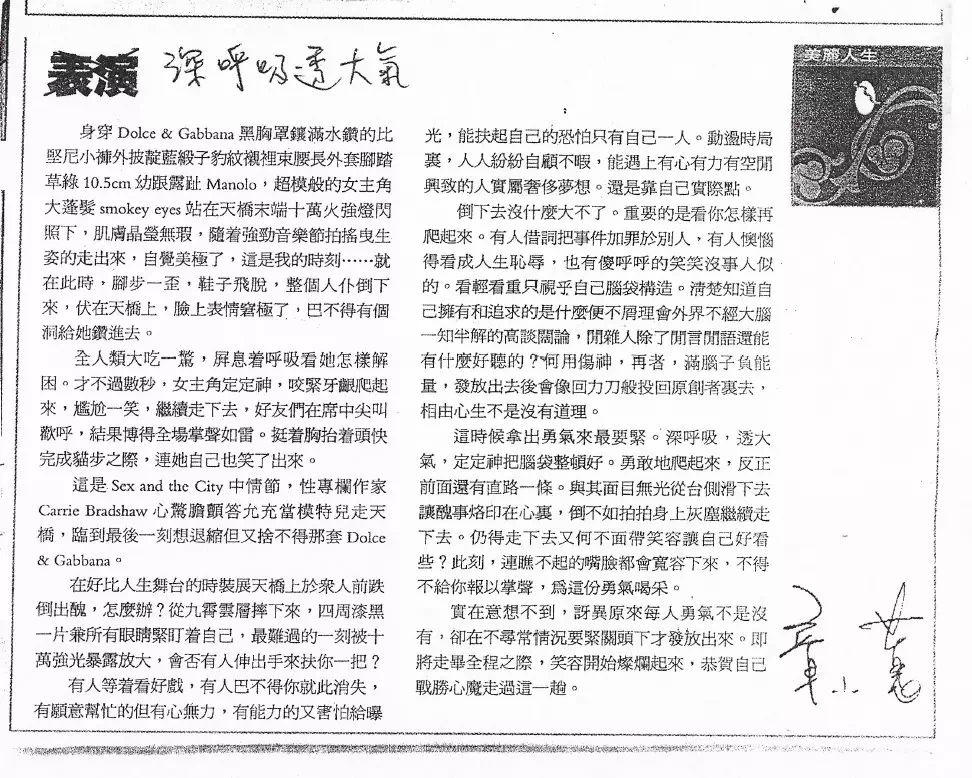 表演 深呼吸透大氣
美麗人生
身穿 Dolce & Gabbana 黑胸罩鑲滿水鑽的比
堅尼小褲外披靛藍緞子豹紋襯裡束腰長外套腳踏
草綠 10.5cm 幼跟露趾 Manolo，超模般的女主角
大蓬髮 smokey eyes 站在天橋末端十萬火強燈閃
照下，肌膚晶瑩無瑕，隨着強勁音樂節拍搖曳生
姿的走出來，自覺美極了，這是我的時刻……就
在此時，腳步一歪，鞋子飛脫，整個人仆倒下
來，伏在天橋上，臉上表情窘極了，巴不得有個
洞給她鑽進去。
全人類大吃一驚，屏息着呼吸看她怎樣解
困。才不過數秒，女主角定定神，咬緊牙齦爬起
來，尷尬一笑，繼續走下去，好友們在席中尖叫
歡呼，結果博得全場掌聲如雷。挺着胸抬着頭快
完成貓步之際，連她自己也笑了出來。
這是 Sex and the City 中情節，性專欄作家
Carrie Bradshaw 心驚膽顫答允充當模特兒走天
橋，臨到最後一刻想退縮但又捨不得那套 Dolce
& Gabbana。
在好比人生舞台的時裝展天橋上於衆人前跌
倒出醜，怎麼辦？從九霄雲層摔下來，四周漆黑
一片兼所有眼睛緊盯着自己，最難過的一刻被十
萬強光暴露放大，會否有人伸出手來扶你一把？
有人等着看好戲，有人巴不得你就此消失，
有願意幫忙的但有心無力，有能力的又害怕給曝
光，能扶起自己的恐怕只有自己一人。動盪時局
裏，人人紛紛自顧不暇，能遇上有心有力有空閒
興致的人實屬奢侈夢想。還是靠自己實際點。
倒下去沒什麼大不了。重要的是看你怎樣再
爬起來。有人借詞把事件加罪於別人，有人懊惱
得看成人生恥辱，也有傻呼呼的笑笑沒事人似
的。看輕看重只視乎自己腦袋構造。清楚知道自
己擁有和追求的是什麼便不屑理會外界不經大腦
一知半解的高談闊論，閒雜人除了閒言閒語還能
有什麼好聽的？何用傷神，再者，滿腦子負能
量，發放出去後會像回力刀般投回原創者裏去，
相由心生不是沒有道理。
這時候拿出勇氣來最要緊。深呼吸，透大
氣，定定神把腦袋整頓好。勇敢地爬起來，反正
前面還有直路一條。與其面目無光從台側滑下去
讓醜事烙印在心裏，倒不如拍拍身上灰塵繼續走
下去。仍得走下去又何不面帶笑容讓自己好看
些？此刻，連瞧不起的嘴臉都會寬容下來，不得
不給你報以掌聲，爲這份勇氣喝采。
實在意想不到，訝異原來每人勇氣不是沒
有，卻在不尋常情況要緊關頭下才發放出來。即
將走畢全程之際，笑容開始燦爛起來，恭賀自己
戰勝心魔走過這一趟。
章小蕙